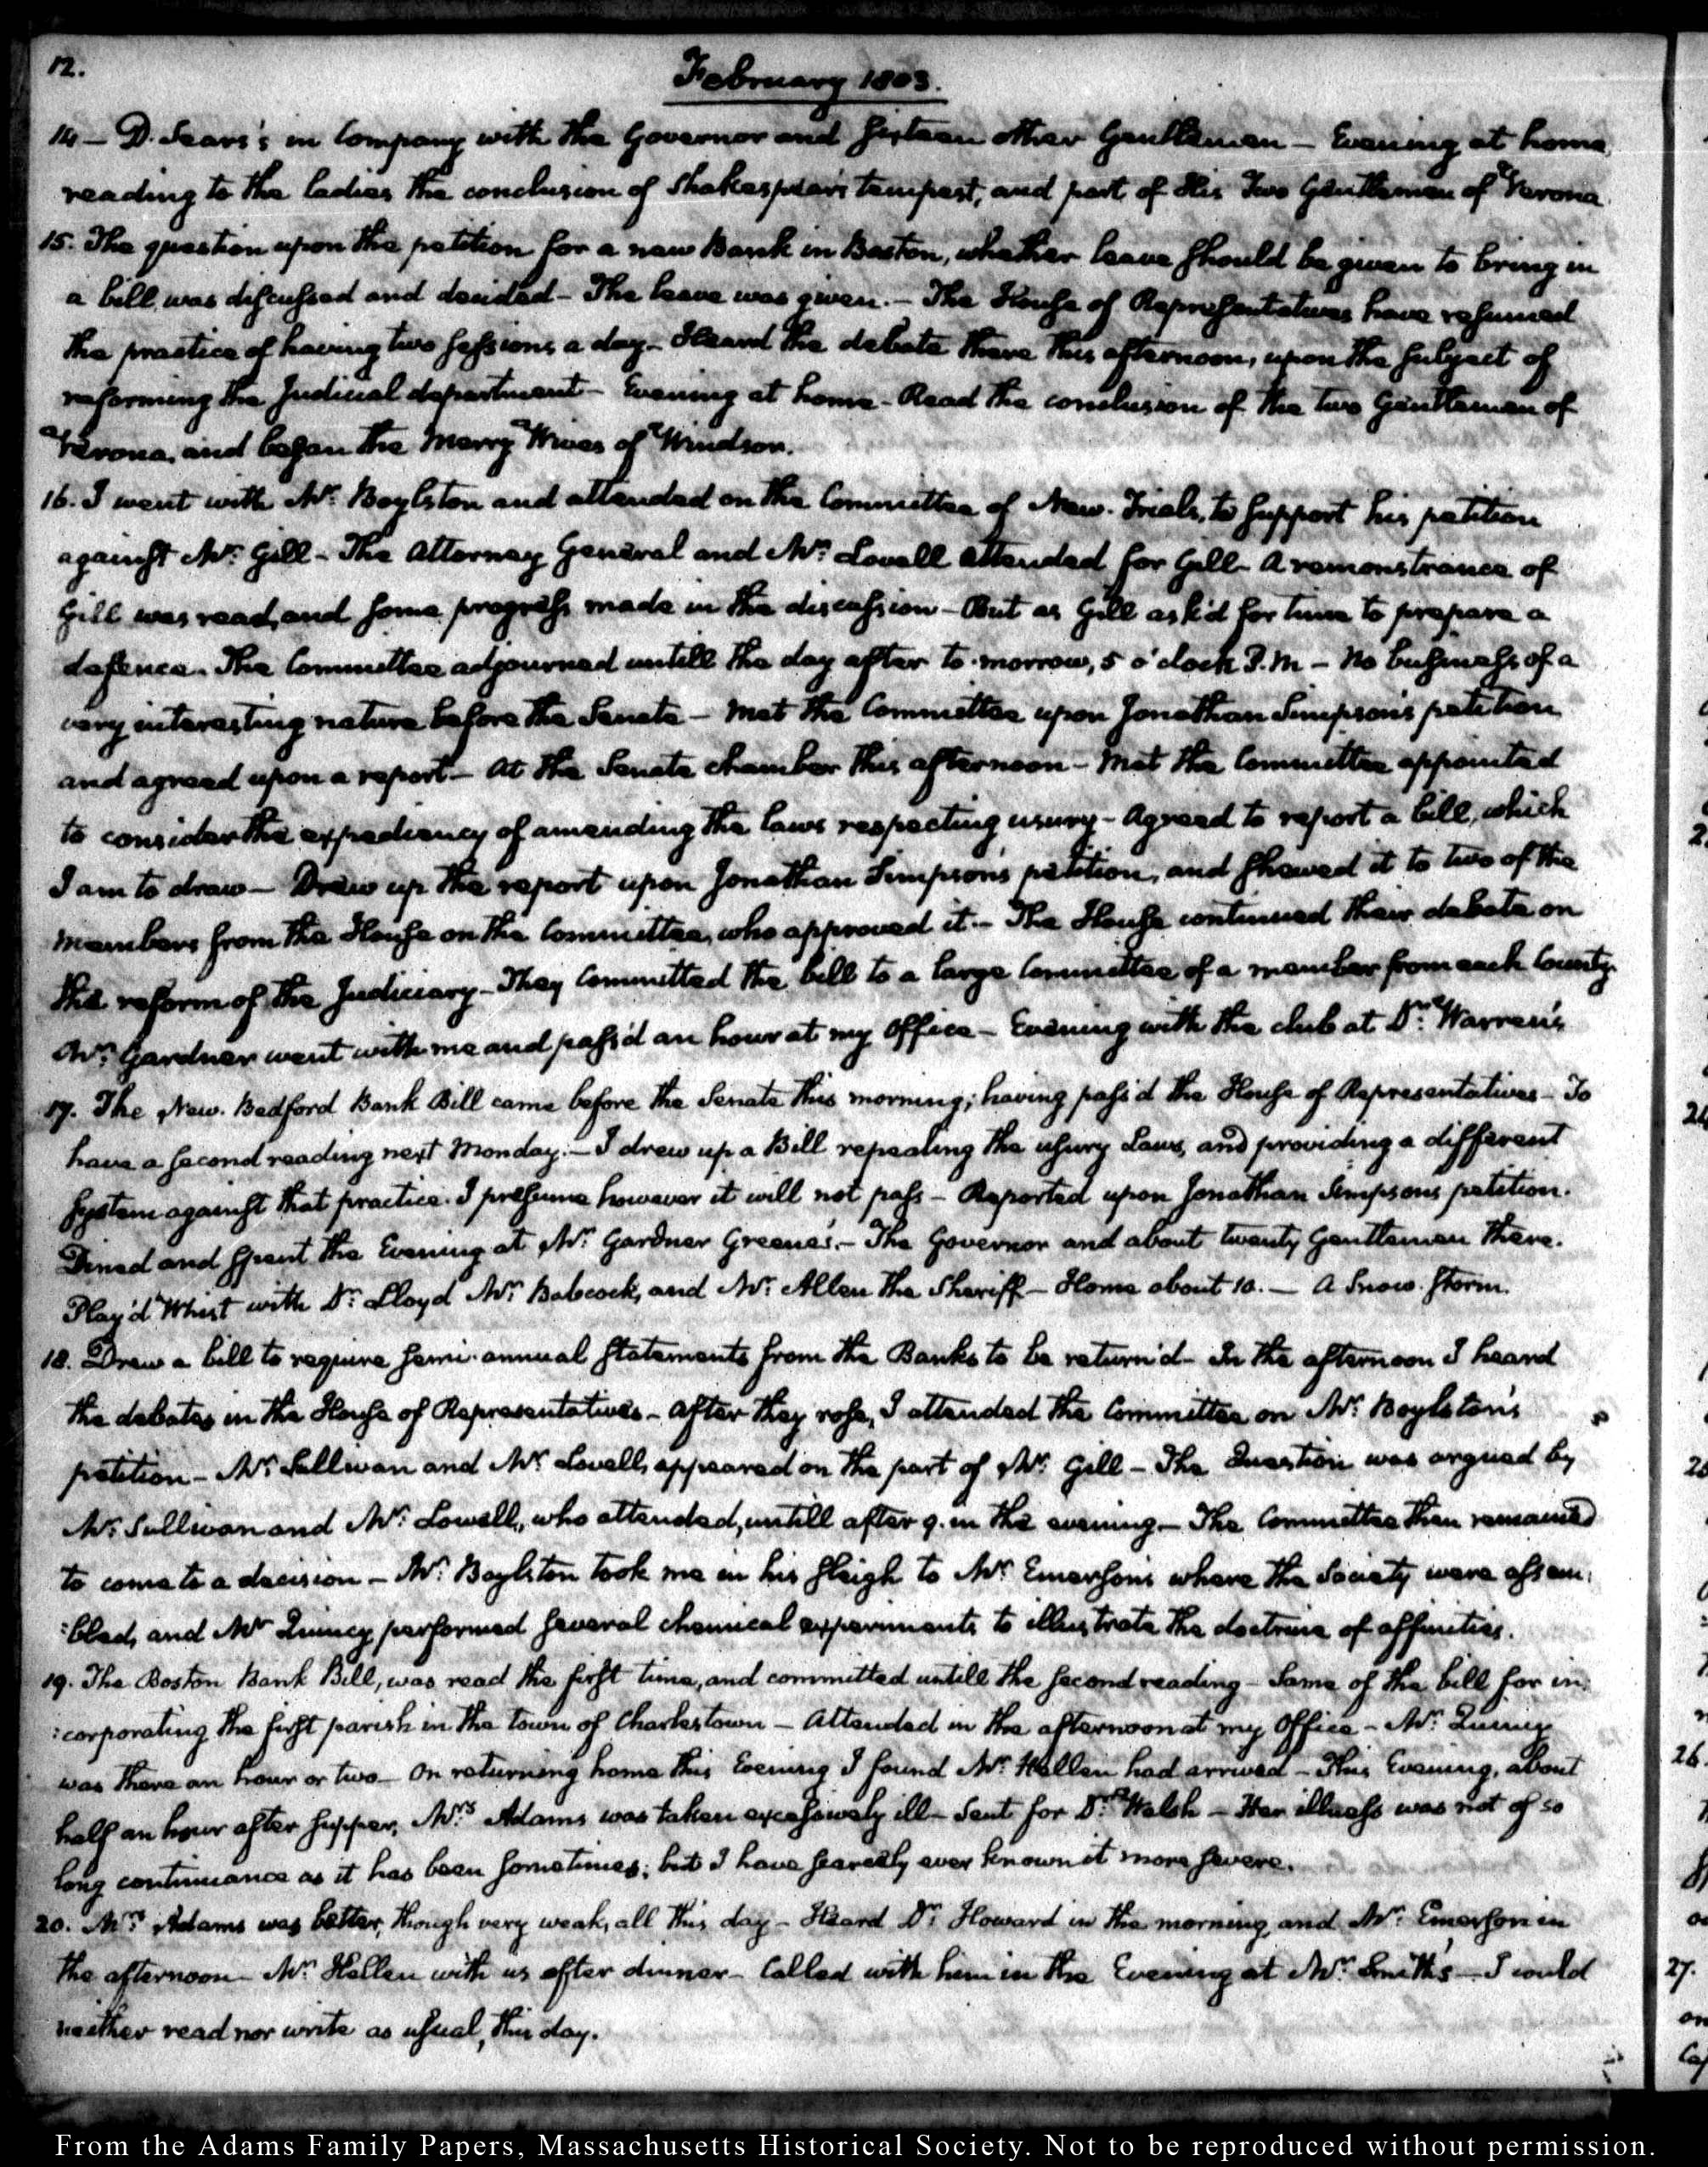 12.
February 1803.
14 — D. Sears's in Company with the Governor and sixteen other Gentlemen — Evening at home,
reading to the ladies the conclusion of Shakespear's tempest, and part of his Two Gentlemen of Verona.
15. The question upon the petition for a new Bank in Boston, whether leave should be given to bring in
a bill, was discussed and decided — The leave was given. — The House of Representatives have resumed
the practice of having two sessions a day — Heard the debate there this afternoon, upon the subject of
reforming the Judicial department — Evening at home — Read the conclusion of the two Gentlemen of
Verona, and began the Merry Wives of Windsor.
16. I went with Mr. Boylston and attended on the Committee of New-Trials, to support his petition
against Mr. Gill — The Attorney General and Mr. Lowell attended for Gill — A remonstrance of
Gill was read, and some progress made in the discussion — But as Gill ask'd for time to prepare a
defence. The Committee adjourned untill the day after to-morrow, 5 o'clock P.M — No business of a
very interesting nature before the Senate — Met the Committee upon Jonathan Simpson's petition
and agreed upon a report — At the Senate chamber this afternoon — Met the Committee appointed
to consider the expediency of amending the laws respecting usury — Agreed to report a bill, which
I am to draw — Drew up the report upon Jonathan Simpson's petition, and shewed it to two of the
members from the House on the Committee, who approved it. — The House continued their debate on
the reform of the Judiciary — They Committed the bill to a large Committee of a member from each County.
Mr. Gardner went with me and pass'd an hour at my Office — Evening with the club at Dr. Warren's
17. The New-Bedford Bank Bill came before the Senate this morning; having pass'd the House of Representatives — To
have a second reading next Monday. — I drew up a Bill repealing the usury Laws, and providing a different
system against that practice. I presume however it will not pass — Reported upon Jonathan Simpsons petition.
Dined and spent the Evening at Mr. Gardner Greene's. — The Governor and about twenty Gentlemen there.
Play'd Whist with Dr. Lloyd Mr. Babcock, and Mr. Allen the Sheriff — Home about 10. — A Snow-storm.
18. Drew a bill to require semi-annual statements from the Banks to be return'd — In the afternoon I heard
the debates in the House of Representatives — After they rose, I attended the Committee on Mr. Boylston's
petition — Mr. Sullivan and Mr. Lowell, appeared on the part of Mr. Gill — The Question was argued by
Mr. Sullivan and Mr. Lowell, who attended, untill after 9. in the evening — The Committee then remained
to come to a decision — Mr. Boylston took me in his sleigh to Mr. Emerson's where the Society were assem:
:bled, and Mr. Quincy performed several chemical experiments to illustrate the doctrine of affinities.
19. The Boston Bank Bill, was read the first time, and committed untill the second reading — Same of the bill for in:
:corporating the first parish in the town of Charlestown — Attended in the afternoon at my Office — Mr. Quincy
was there an hour or two — On returning home this Evening I found Mr. Hellen had arrived — This Evening, about
half an hour after supper, Mrs. Adams was taken excessively ill — Sent for Dr. Welsh — Her illness was not of so
long continuance as it has been sometimes; but I have scarcely ever known it more severe.
20. Mrs. Adams was better, though very weak, all this day — Heard Dr. Howard in the morning, and Mr. Emerson in
the afternoon — Mr. Hellen with us after dinner — Called with him in the Evening at Mr. Smith's — I could
neither read nor write as usual, this day.
26.
27.
From the Adams Family Papers, Massachusetts Historical Society. Not to be reproduced without permission.